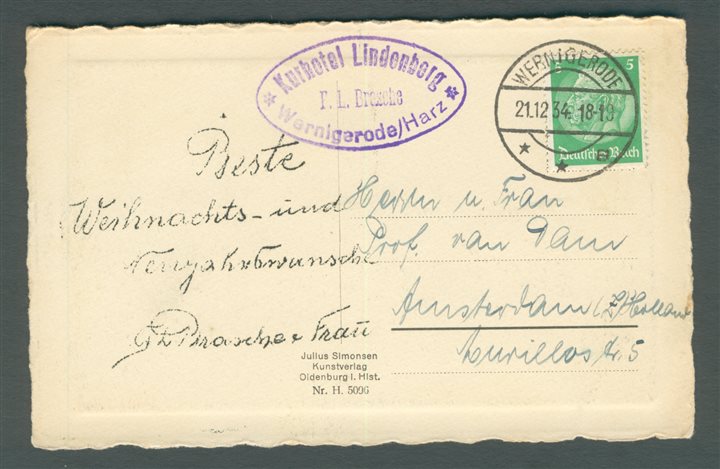 Kurhotel Lindenberg
F. L. Brosche
* Wernigerode/Harz *
WERNIGERODE
21.12 34. 18-19
* * e
5
Deutsches Reich
Beste
Weihnachts- und
Neujahrswünsche
FL Brosche u Frau
Herrn u. Frau
Prof. van Dam
Amsterdam (Z) Holland
Murillostr. 5
Julius Simonsen
Kunstverlag
Oldenburg i. Hlst.
Nr. H. 5096